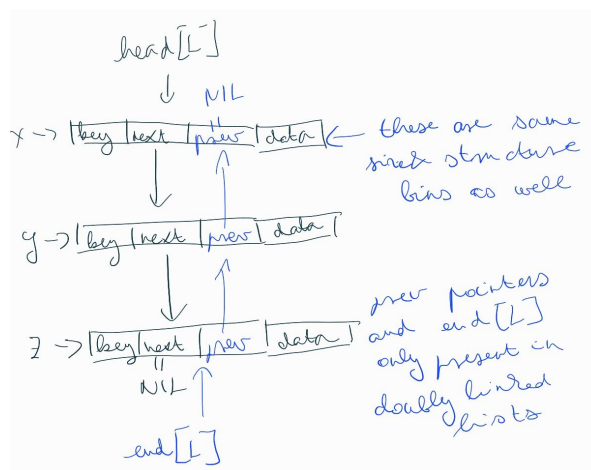 head[L]
NIL
x -> |key |next |prev |data| <- these are same
size & structure
bins as well
y -> |key |next |prev| data |
z -> |key|next |prev |data|
NIL
end[L]
prev pointers
and end[L]
only present in
doubly linked
lists